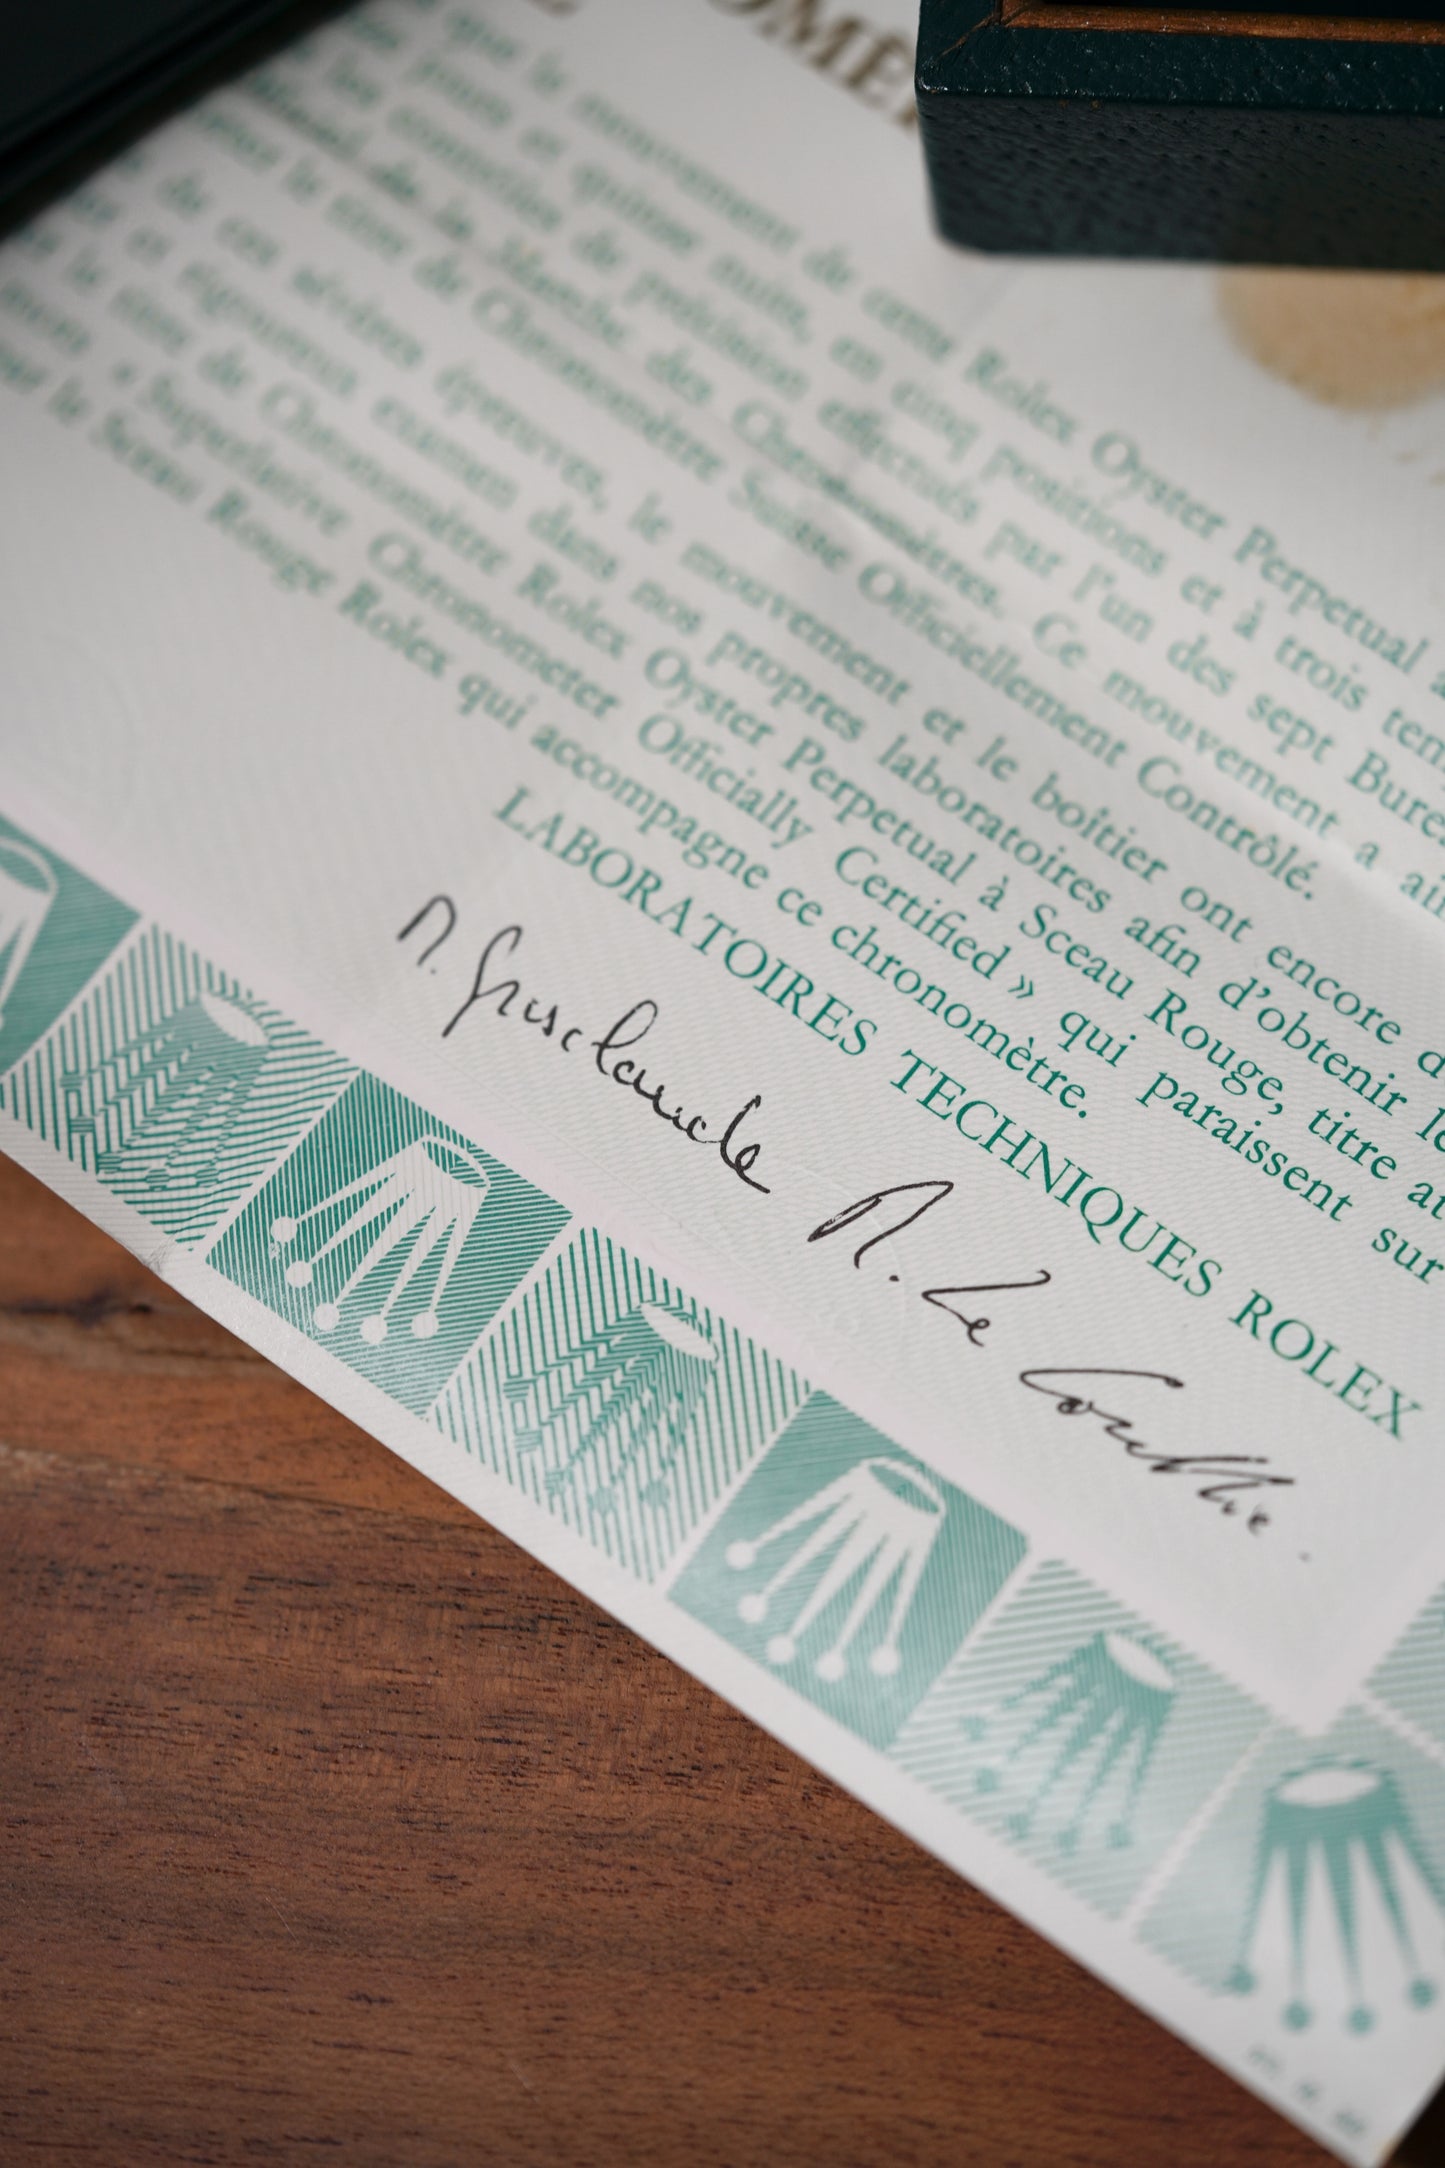 OMÈ
que le mouvement de cette Rolex Oyster Perpetual a
jours et quinze nuits, en cinq positions et à trois tem
les contrôles de précision effectués par l'un des sept Burea
de la Marche des Chronomètres. Ce mouvement a ain
le titre de Chronomètre Suisse Officiellement Contrôlé.
de ces sévères épreuves, le mouvement et le boîtier ont encore d
et rigoureux examen dans nos propres laboratoires afin d'obtenir le
le titre de Chronomètre Rolex Oyster Perpetual à Sceau Rouge, titre at
« Superlative Chronometer Officially Certified » qui paraissent sur
le Sceau Rouge Rolex qui accompagne ce chronomètre.
LABORATOIRES TECHNIQUES ROLEX
M. Grisclaude M. Le Coultre.